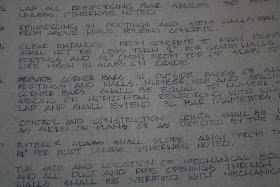 LAP ALL REINFORCING BAR SPLICES
UNLESS OTHERWISE NOTED.
REINFORCING IN FOOTINGS AND STEM WALLS SHALL
FROM ABOVE WHILE POURING CONCRETE.
CLEAR DISTANCES FROM CONCRETE TO MAIN REINF
SHALL NOT BE LESS THAN FOR GRADE WALLS
FOOTINGS AND FROM TOP OF
IN SLAB ON GRADE.
PROVIDE CORNER BARS IN OUTSIDE FACES OF ALL
FOOTINGS AND WALLS. NUMBER SIZE AND
CORNER BARS SHALL BE EQUAL TO NUMBER
SPACING OF HORIZONTAL REINFORCING WITH WHICH
LAP AND SHALL EXTEND 36 BAR DIAMETERS
CONTROL AND CONSTRUCTION JOINTS SHALL BE
AS SHOWN ON PLANS OR AS
EXTERIOR SLABS SHALL SLOPE AWAY FROM
1/4" PER FOOT UNLESS OTHERWISE NOTED.
THE SIZE AND LOCATION OF MECHANICAL
AND ALL DUCT AND PIPE OPENINGS THROUGH
WALLS SHALL BE VERIFIED WITH